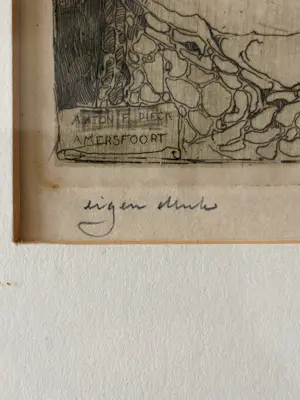 ANTON E PIECK
AMERSFOORT
eigen druk